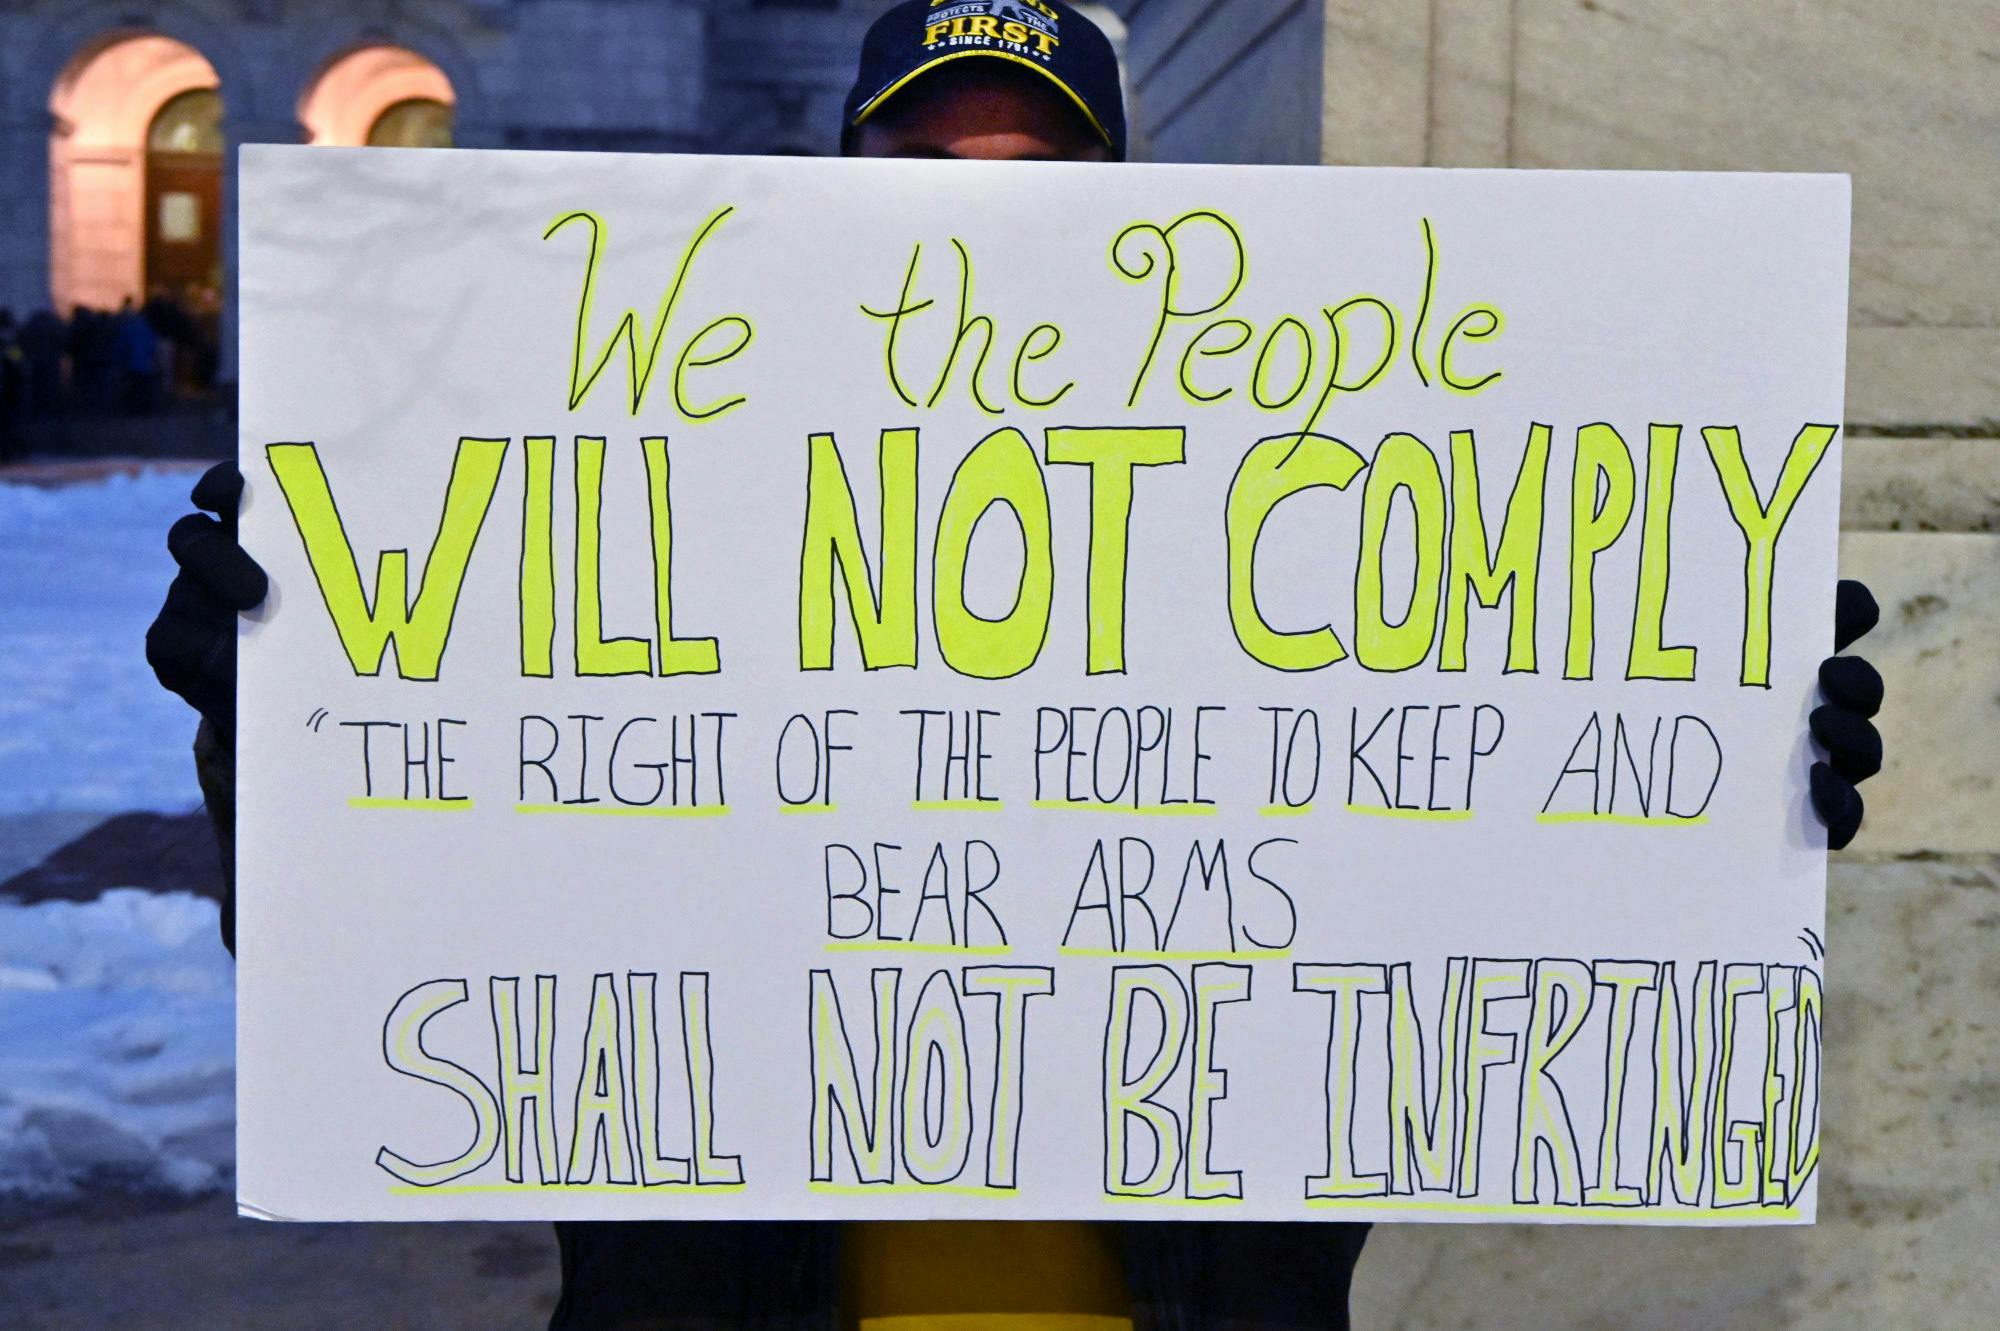 PROTECTS THE
FIRST
SINCE 1791
We the People
WILL NOT COMPLY
"THE RIGHT OF THE PEOPLE TO KEEP AND
BEAR ARMS
SHALL NOT BE INFRINGED"